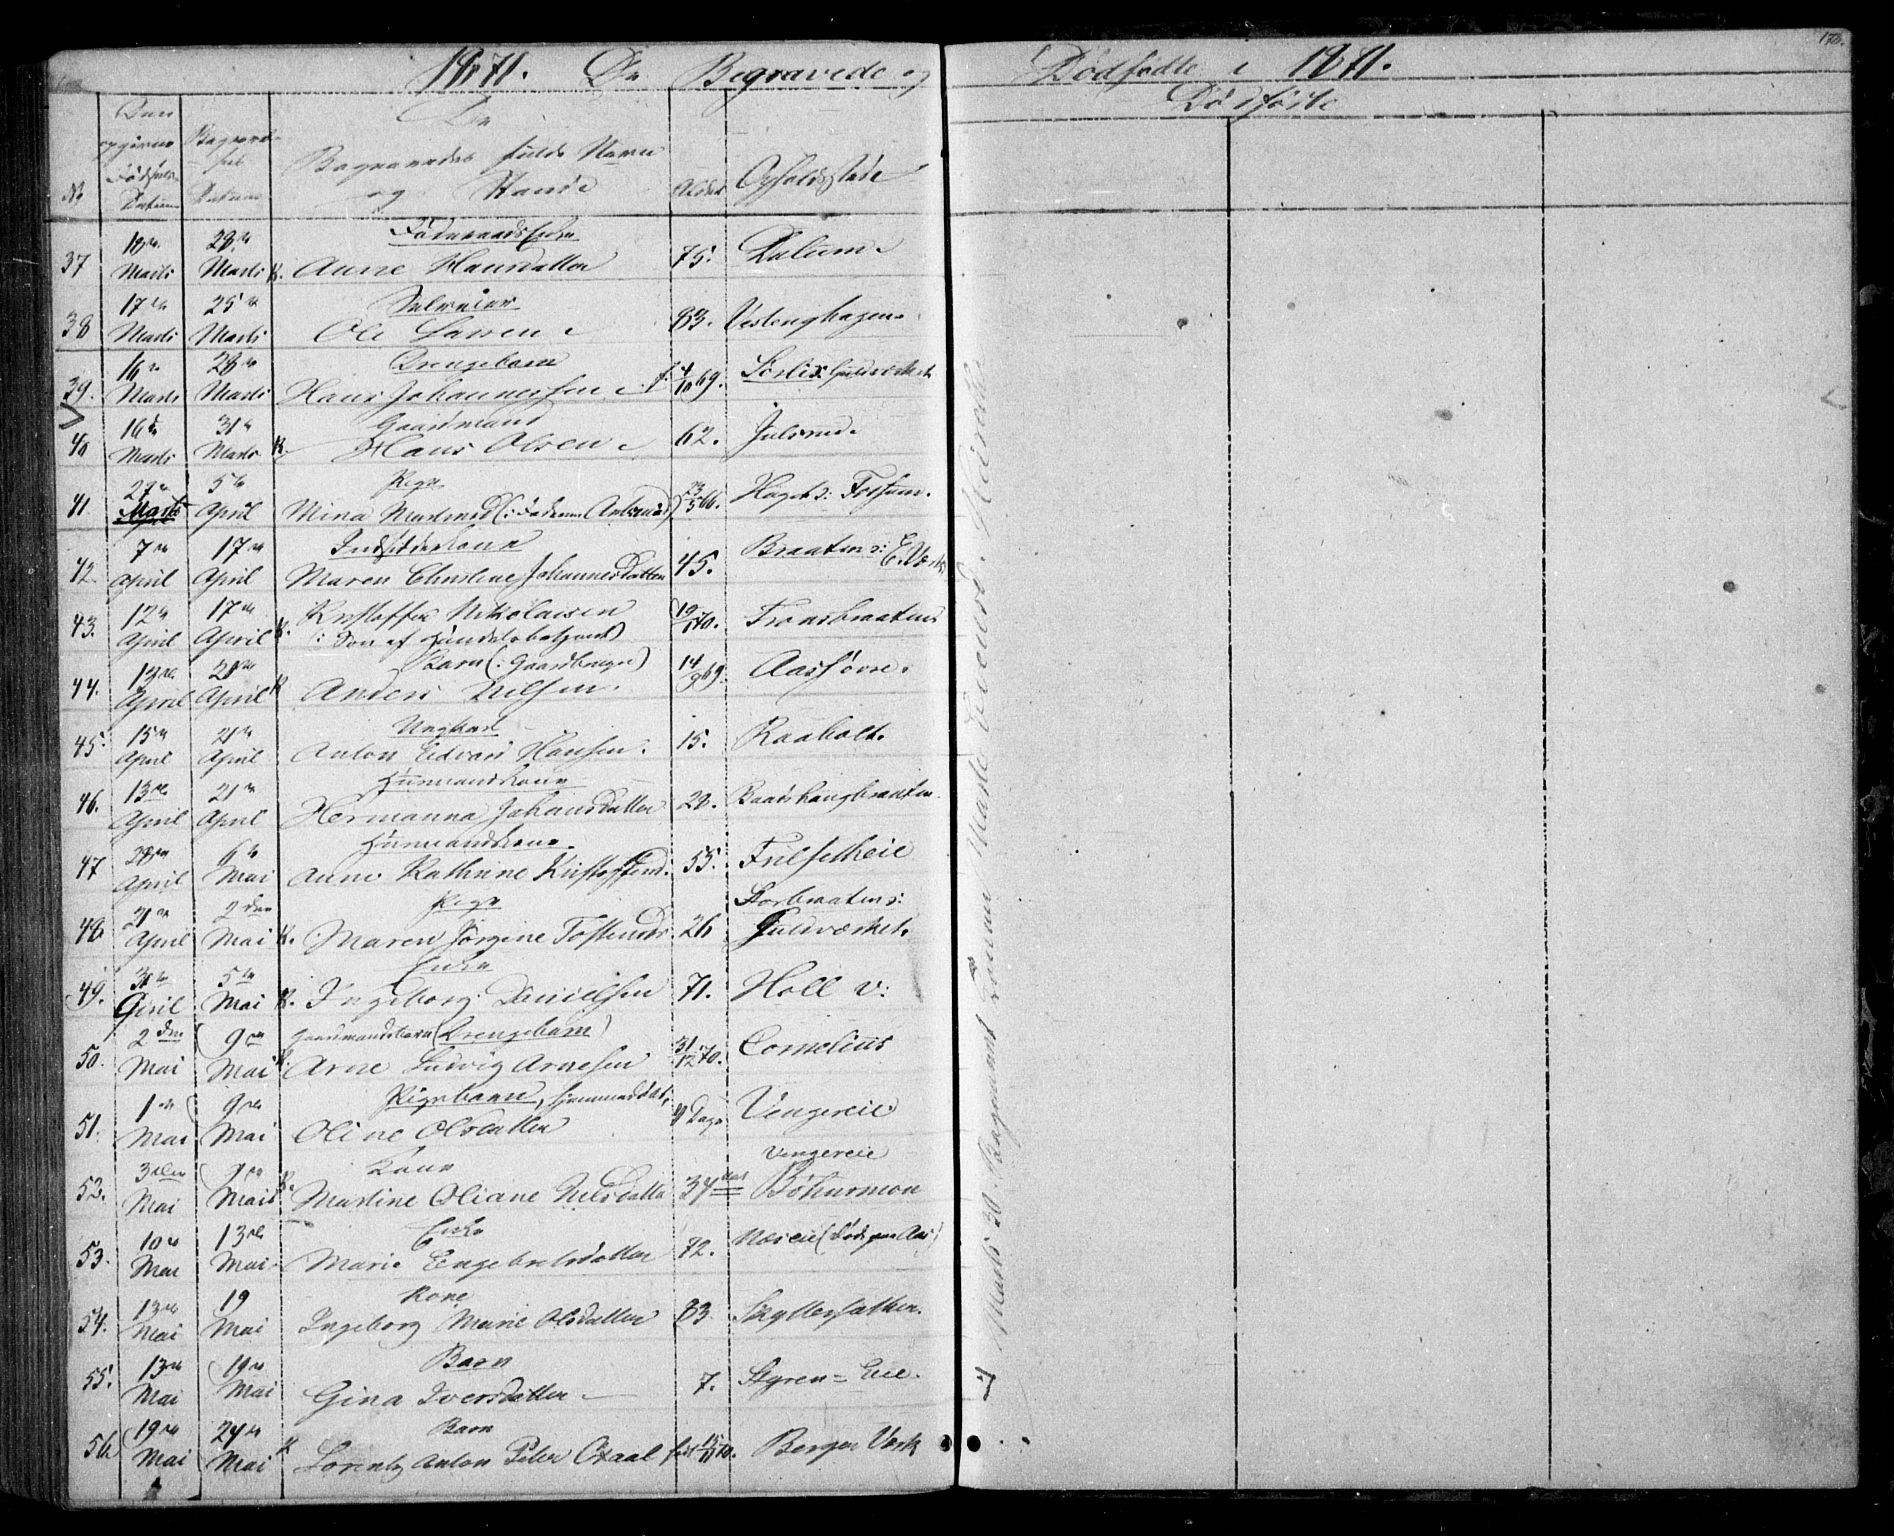 1871. De Begravede og Dødfødte i 1871.
Dødfødte
No
Den opgivne Dødsfalds Datum
Begravelses Datum
Den Begravedes fulde Navn og Stand
Alder
Opholdssted
37 18de Marts 28de Marts K. Føderaads Enke Anne Hansdatter 75. Dalum
38 17de Marts 25de Marts Selveier Ole Larsen 83. Vestenghagen
39. 16de Marts 28de Marts Drengebarn Hans Johannessen f. 4/10 69. Guldværket
40 16de Marts 31te Marts K. Gaardmand Hans Olsen 62. Julsrud
41 27de Marts 5te April Pige Mina 23/5 66. Haget v: Fossum.
42. 7de April 17de April Inderstkone Maren Christine Johannesdatter 45. Braaten v: E. Værk
43. 12te April 17de April K. Kristoffer Nikolaisen (: Søn af Handelsbetjent) 19/1 70. Tronsbraaten
44. 13de April 21de April K Barn (: Gaardbruger) Anders Nilsen. 14/9 69. Aas søvre.
45. 15de April 21de April Ungkarl Anton Edvard Hansen. 15. Raaholt.
46. 13de April 21de April Huusmandskone Hermanna Johansdatter 28. Baadshaugbraaten
47 28de April 6te Mai Huusmandskone. Anne Kathrine Kristoffersd. 55. Fulsetheie
48 21de April 2den Mai K. Pige Maren Jørgine Tostensdr 26 Storbraaten v: Guldværket.
49. 30te April 5te Mai K. Enke Ingeborg Danielsen 71. Holl v:
50. 2den Mai 9de Mai K. Gaardmandsbarn (Drengebarn) Arne Ludvig Arnesen 31/12 70. Cornelius
51. 1ste Mai 9de Mai Pigebarn, hjemmedøbt, Oline Olsdatter 4 Dage Vengereie
52. 3die Mai 9de Mai K. Kone Martine Oliane Nilsdatter 34 Aar Vengereie Bøhnsmoen
53. 10de Mai 13de Mai Enke Marie Engebretsdatter 72. Næseie (Død paa Aas)
54. 13de Mai 19 Mai Kone Ingeborg Marie Olsdatter 83 Skyttersætheren.
55. 13de Mai 19de Mai Barn Gina Iversdatter 7. Styren = Eie.
56 19de Mai 24de Mai K Barn Lorentz Anton Peter født 70. Berger Værk
Marts 30. Bagmand